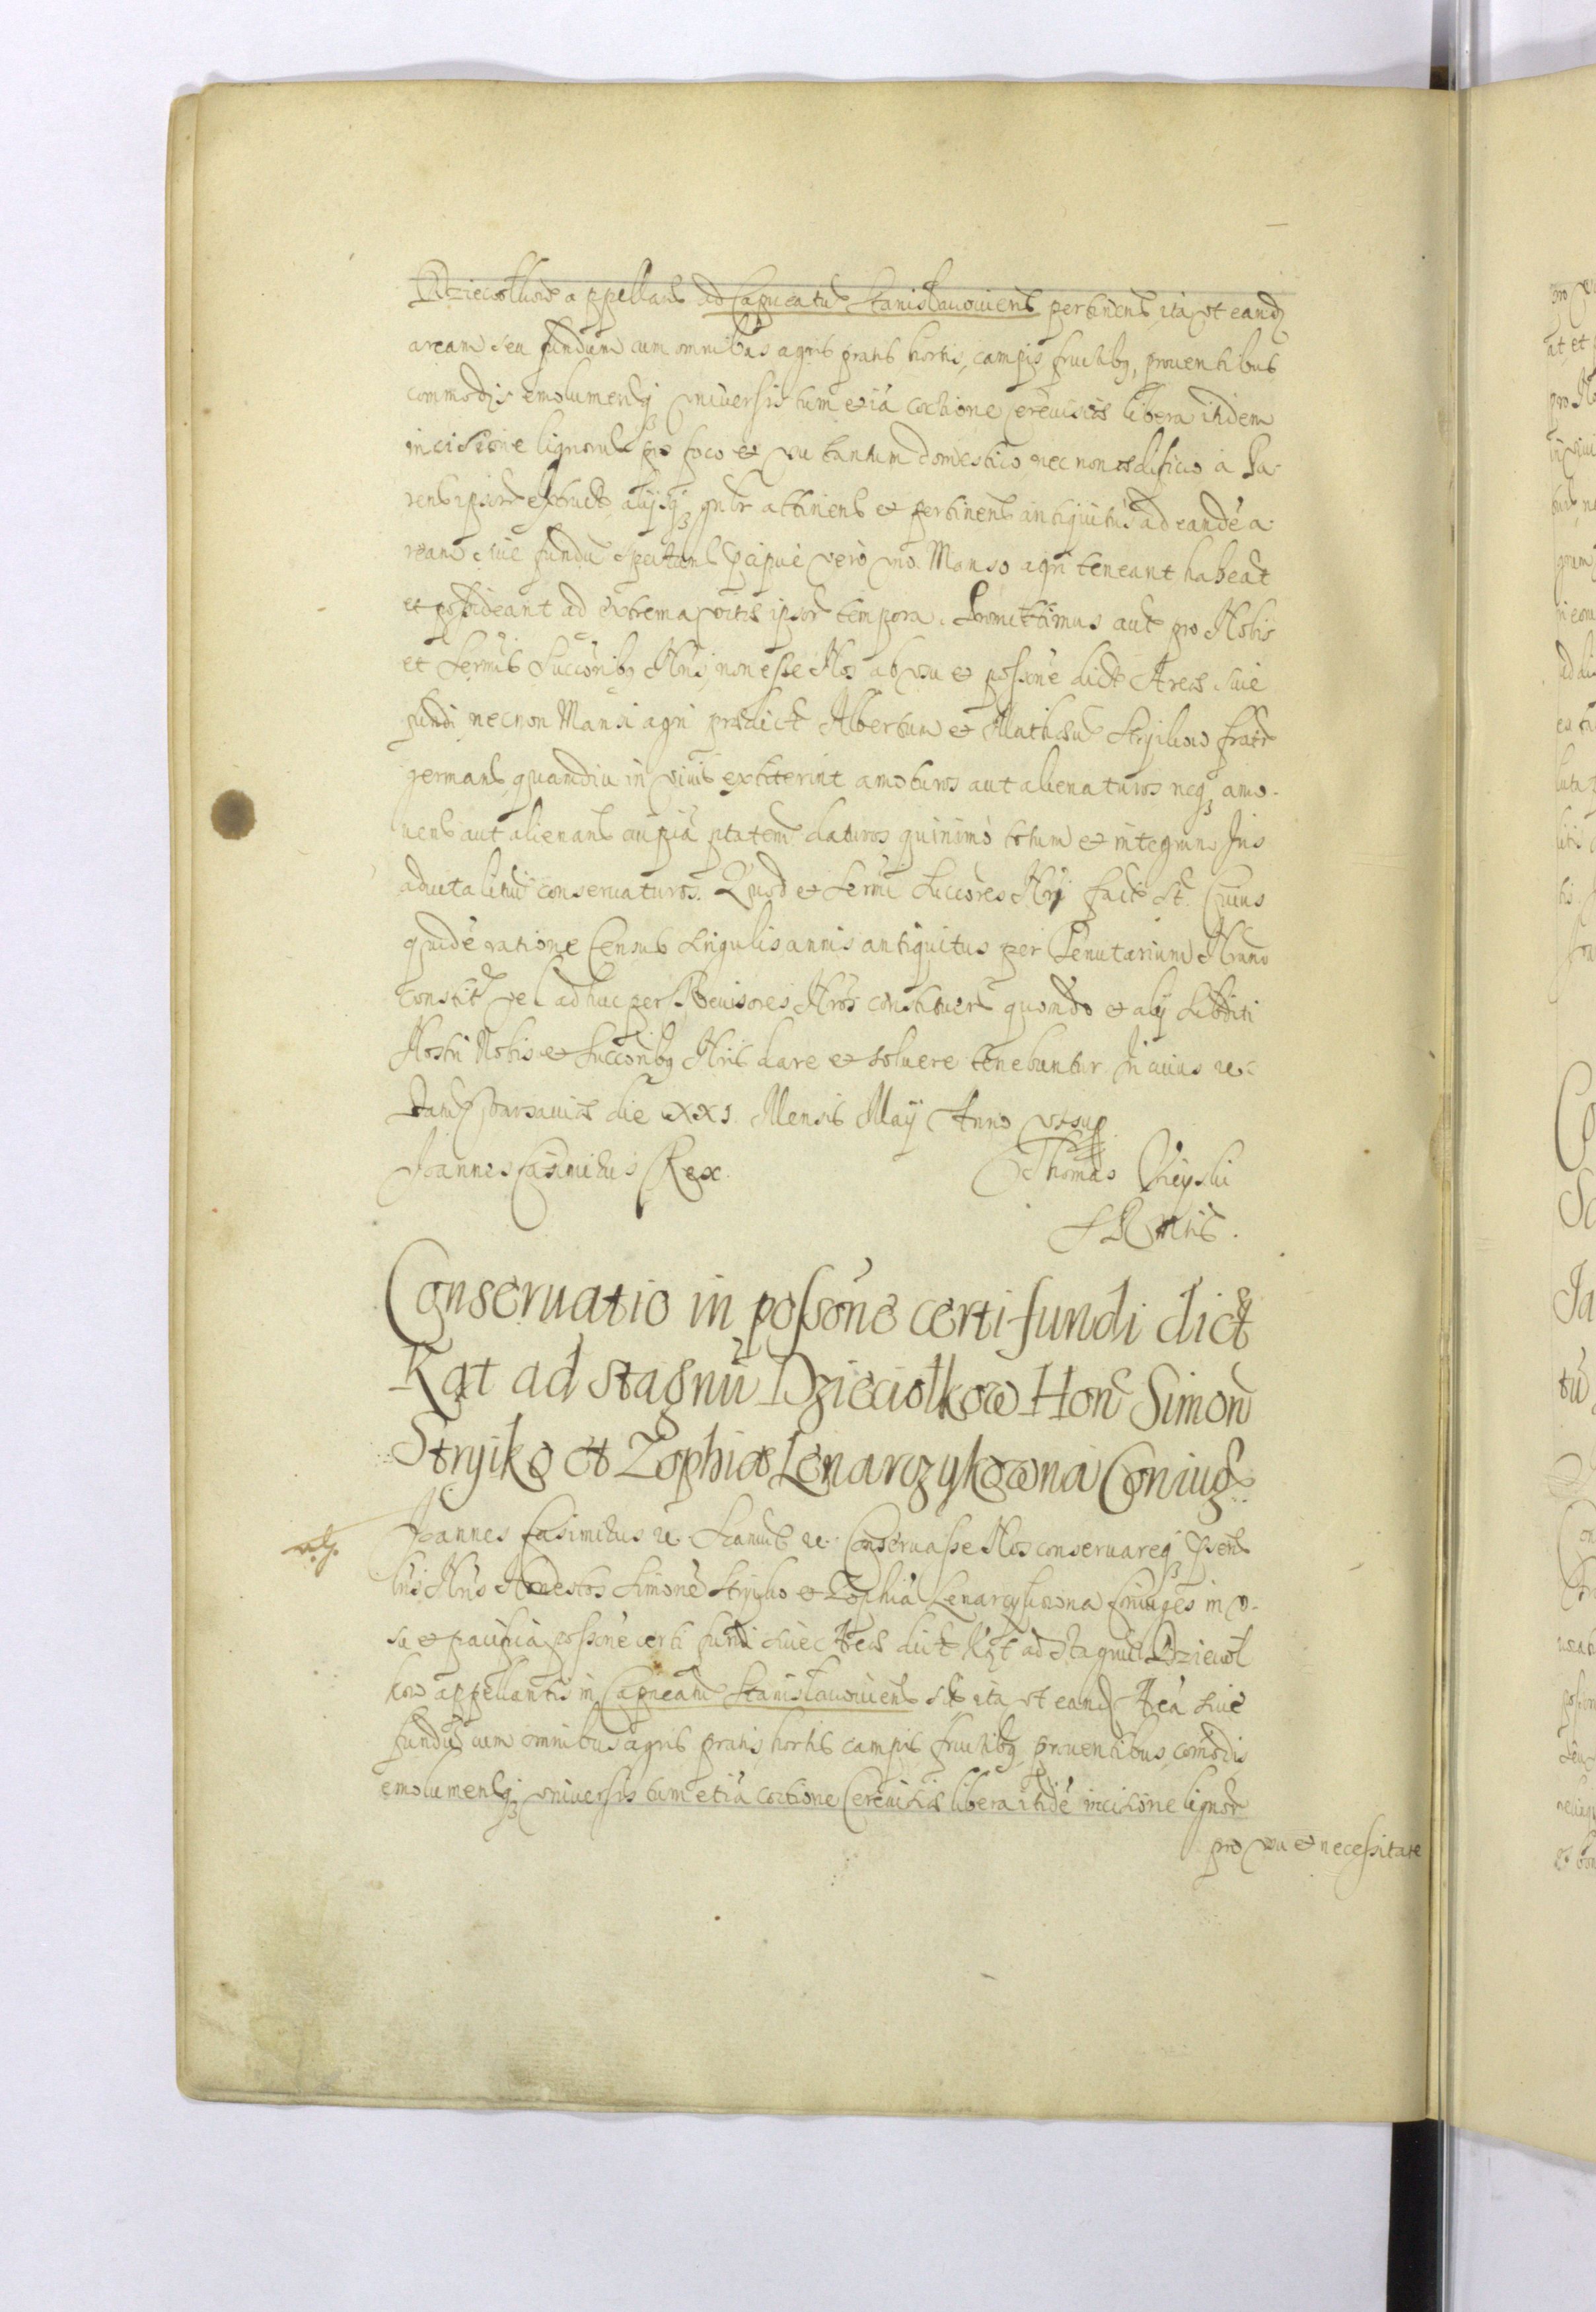 Dzieciołkow appellans ad Capneatū Stanisławouiens pertinens ita vt eandȝ
aream seu fundum cum omnibus agris pratis hortis, campis fructibȝ, prouentibus
commodis emolumentisqȝ vniuersis tum etiā coctione cereuisiæ libera itidem
incisione lignorū pro foco et vsu tantum domestico nec non ædificio à Pa-
rent ipsorū extruct alijsqȝ gnlr attinens et pertinens antiquitus ad eandē a-
ream siue fundū spectans pcipuè verò vno Manso agri teneant habeat
et possideant ad extrema vitæ ipsorū tempora. Promittimus aut pro Nobis
et Sermis Succoribȝ Nris, non esse Nos ab vsu et possone dict Areæ siue
fundi necnon Mansi agri prædict Albertum et Mathæū Stryikow fratr
germans quamdiu in viuis extiterint amoturos aut alienaturos neqȝ amo-
uens aut alienans cuipiā ptatem daturos quinimò totum et integrum Jus
aduitalitiū conseruaturos. Quod et Sermi Succores Nri facie St. Cuius
quidē ratione Census singulis annis antiquitus per Tenutarium Nrum
constit vel adhuc per Reuisores Nros constituens quomodo et alij Subditi
Nostri Nobis et Succoribȝ Nris dare et soluere tenebuntur. In cuius rei
Datū Varsauiæ die XXI. Mensis Maij Anno vt sup
Joannes Casimirus Rex. Thomas Vieyski
S R Mtis.
Conseruatio in possone certi fundi dict
Kąt ad stagnū Dzieciołkow Hon Simon
Stryiko et Zophiæ Lenarczykowna Coniug
Joannes Casimirus &c. Significamus &c. Conseruasse Nos conseruareqȝ psent
lris Nris Honestos Simonē Stryiko et Zophiā Lenarczykowna coniuges in v-
su et pacifica possone certi fundi siue Areæ dict Kąt ad Stagnū Dzieciol
kow appellantis in Capneatū Stanisławouiens sit ita vt eandȝ Areā siue
fundū cum omnibus agris pratis hortis campis fructibȝ prouentibus, comodis
emolumentisqȝ vniuersis tum etiā coctione Cereuisiæ libera itidē incisione lignorū
pro vsu et necessitate